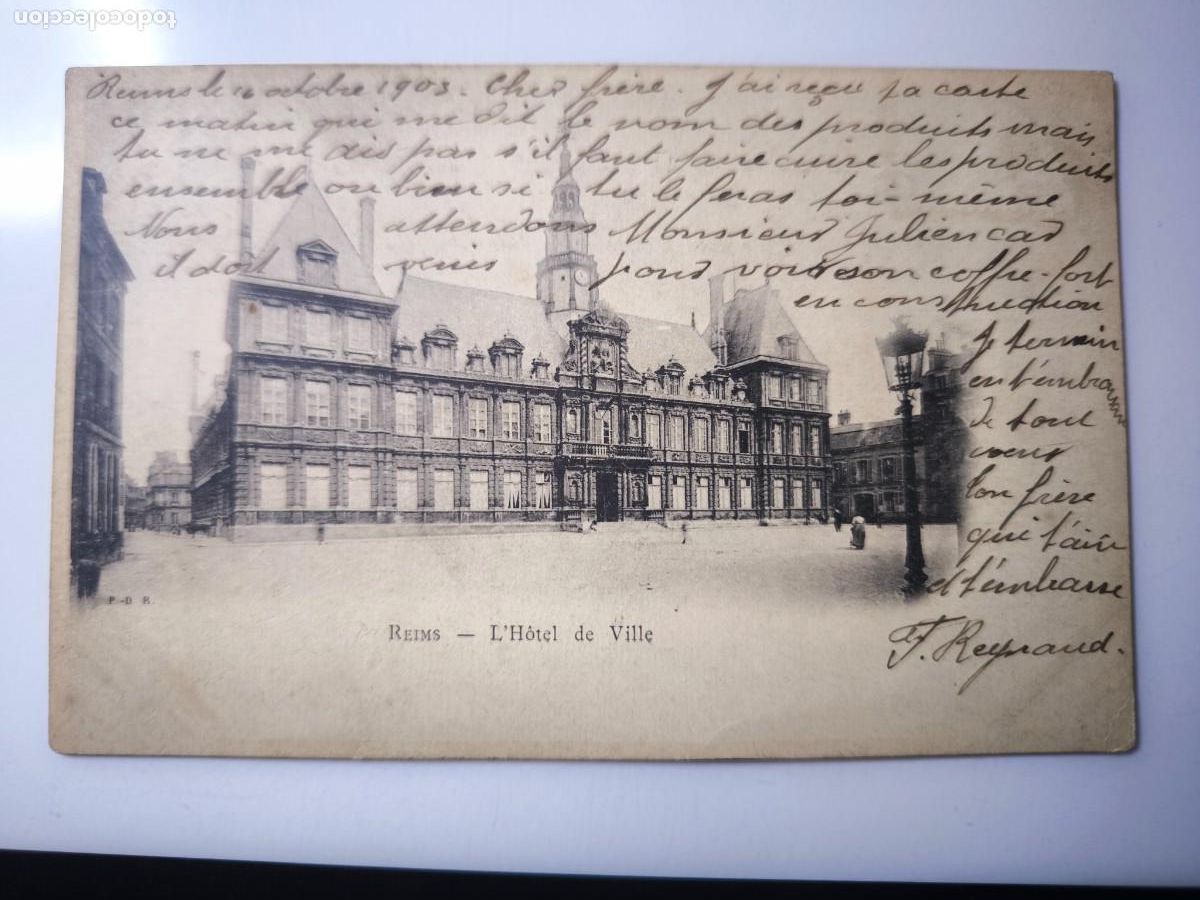 todocoleccion
Reims le 16 octobre 1903. Cher frère. J'ai reçu ta carte
ce matin qui me dit le nom des produits mais
tu ne me dis pas s'il faut faire cuire les produits
ensemble ou bien si tu le feras toi-même
Nous attendons Monsieur Julien car
il doit venir pour voir son coffre-fort
en construction
Je termine
en t'embrassant
de tout
cœur
Ton frère
qui t'aime
et t'embrasse
F. Reynaud.
P.-D. R.
REIMS — L'Hôtel de Ville